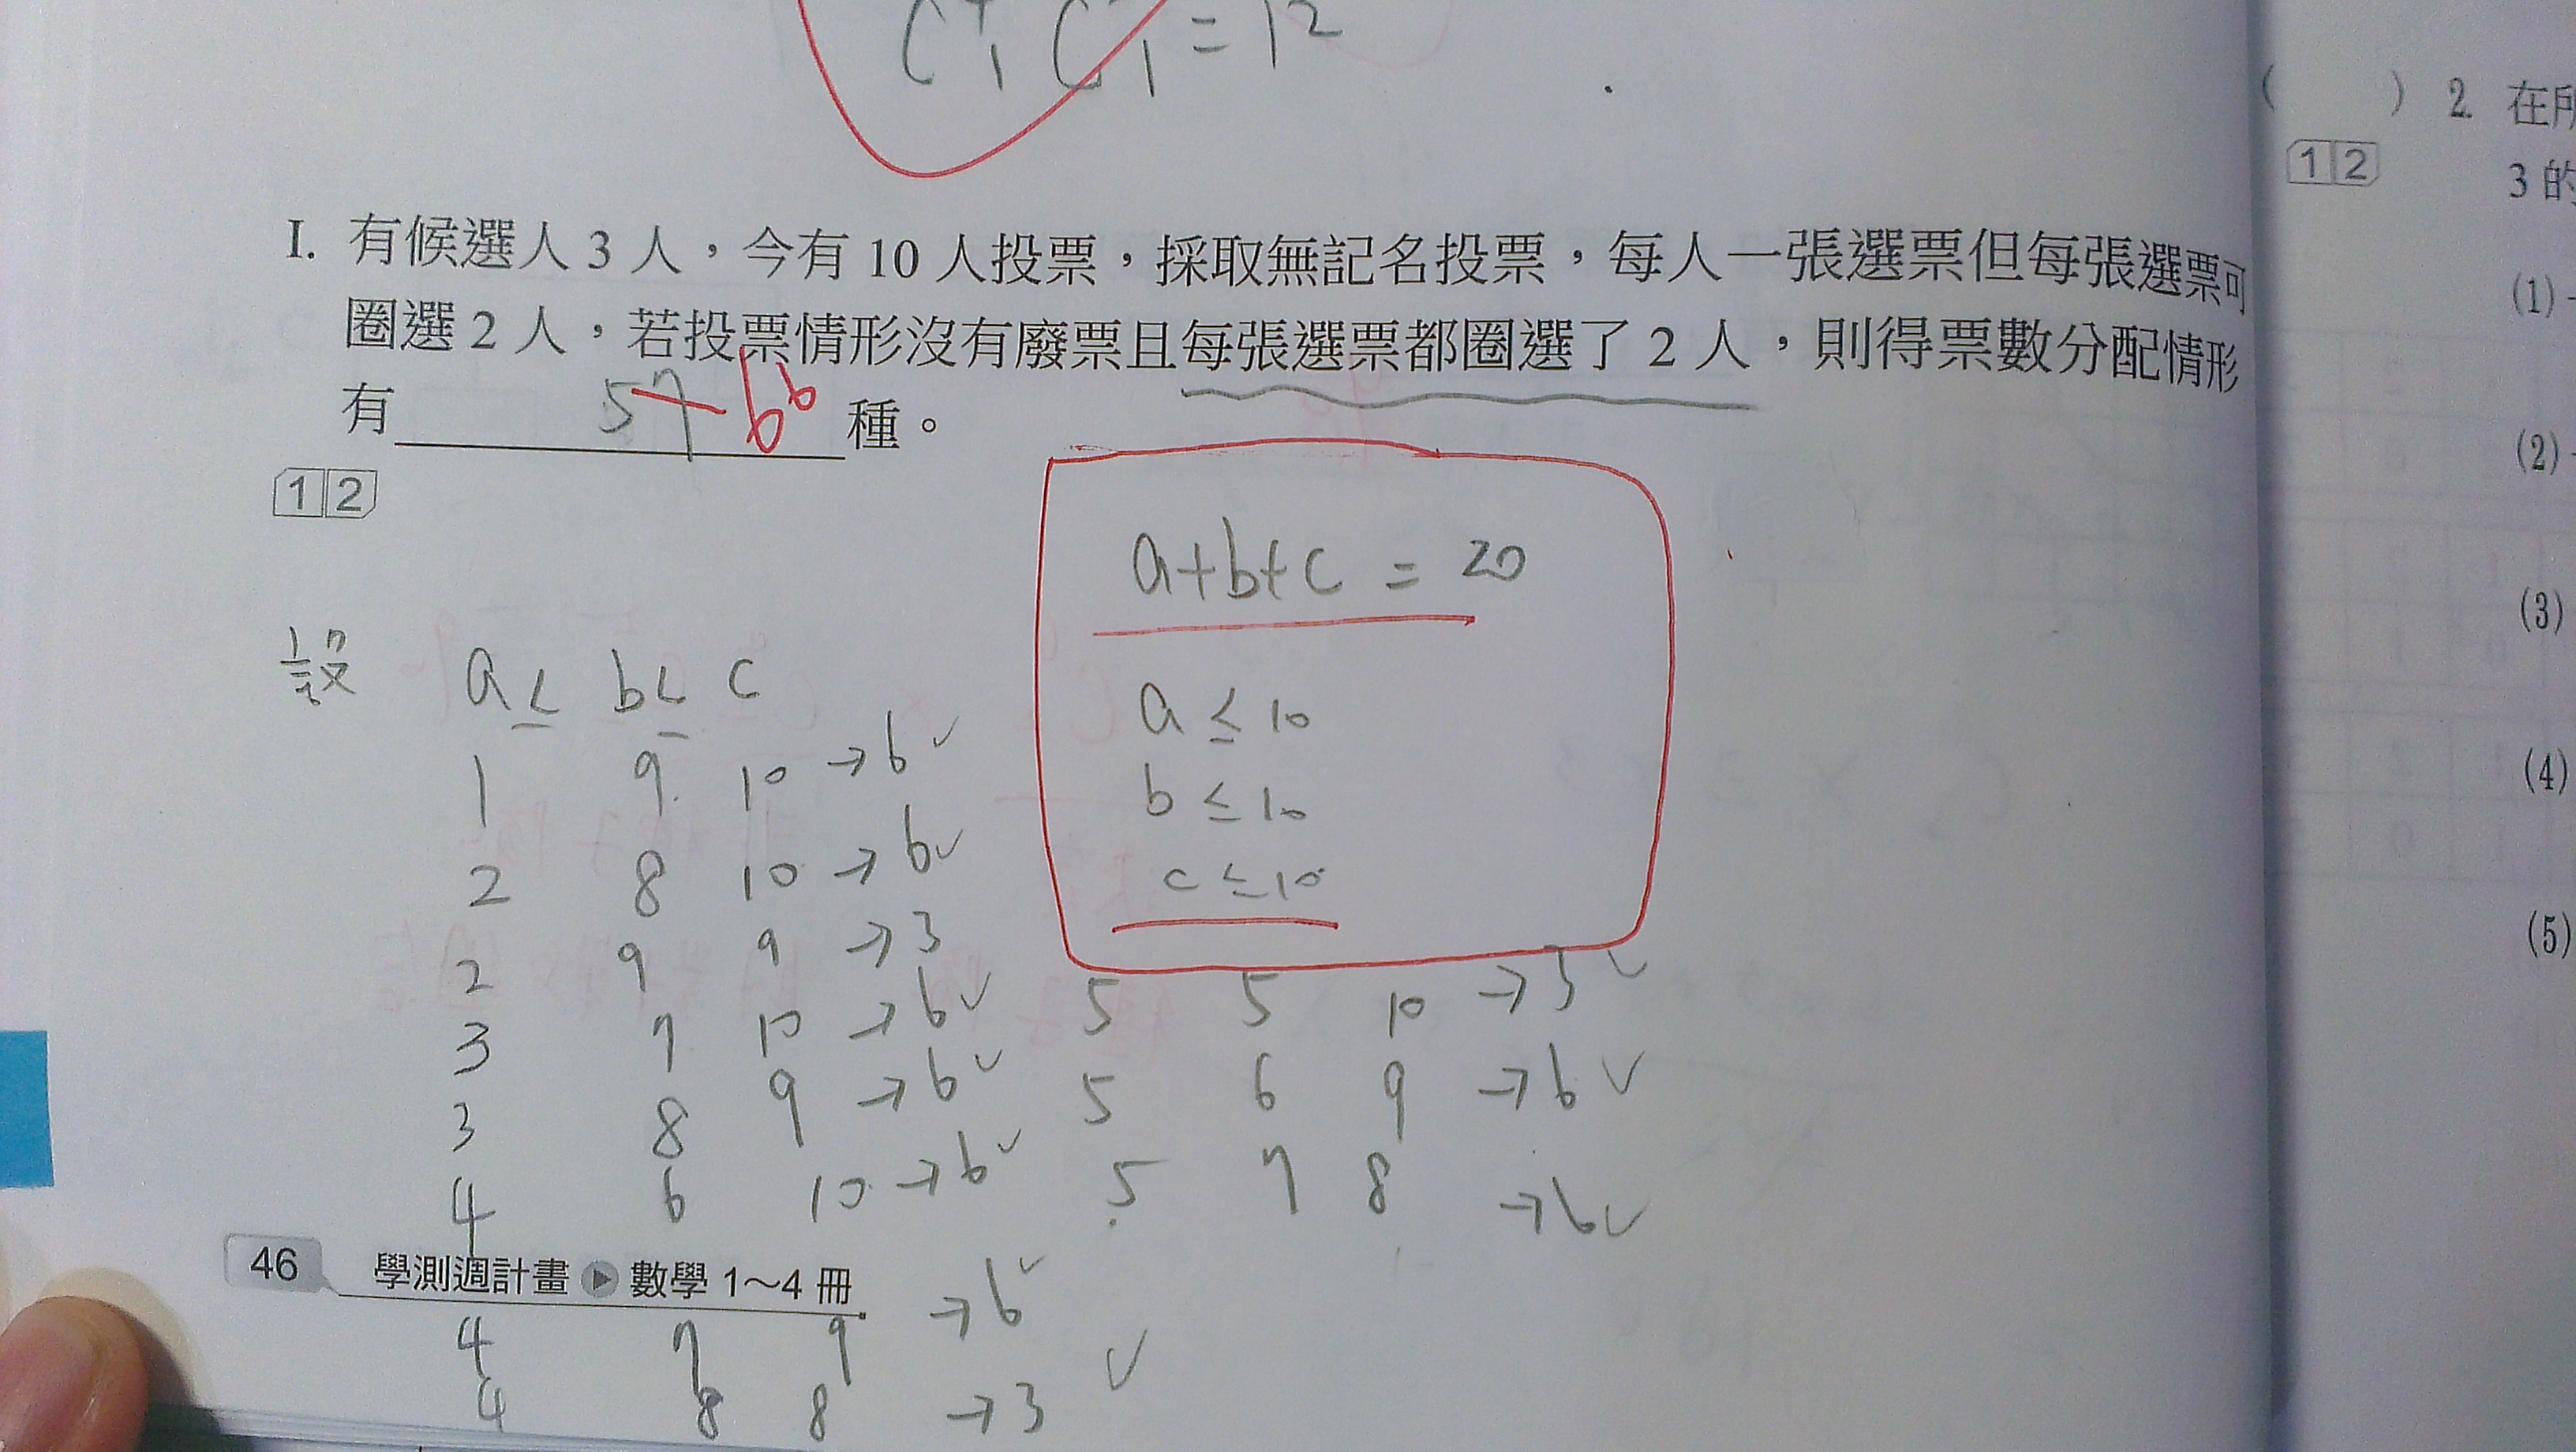 C C₁ = 12
I. 有候選人 3 人，今有 10 人投票，採取無記名投票，每人一張選票但每張選票可
圈選 2 人，若投票情形沒有廢票且每張選票都圈選了 2 人，則得票數分配情形
有 57 66 種。
1 2
a+b+c = 20
a ≤ 10
b ≤ 10
c ≤ 10
設 a ≤ b ≤ c
1 9 10 → 6 ✓
2 8 10 → 6 ✓
2 9 9 → 3
3 7 10 → 6 ✓
3 8 9 → 6 ✓
4 6 10 → 6 ✓
4 7 9 → 6 ✓
4 8 8 → 3 ✓
5 5 10 → 3 ✓
5 6 9 → 6 ✓
5 7 8 → 6 ✓
46 學測週計畫 數學 1～4 冊
( ) 2. 在所
1 2
3 的
(1)
(2)
(3)
(4)
(5)